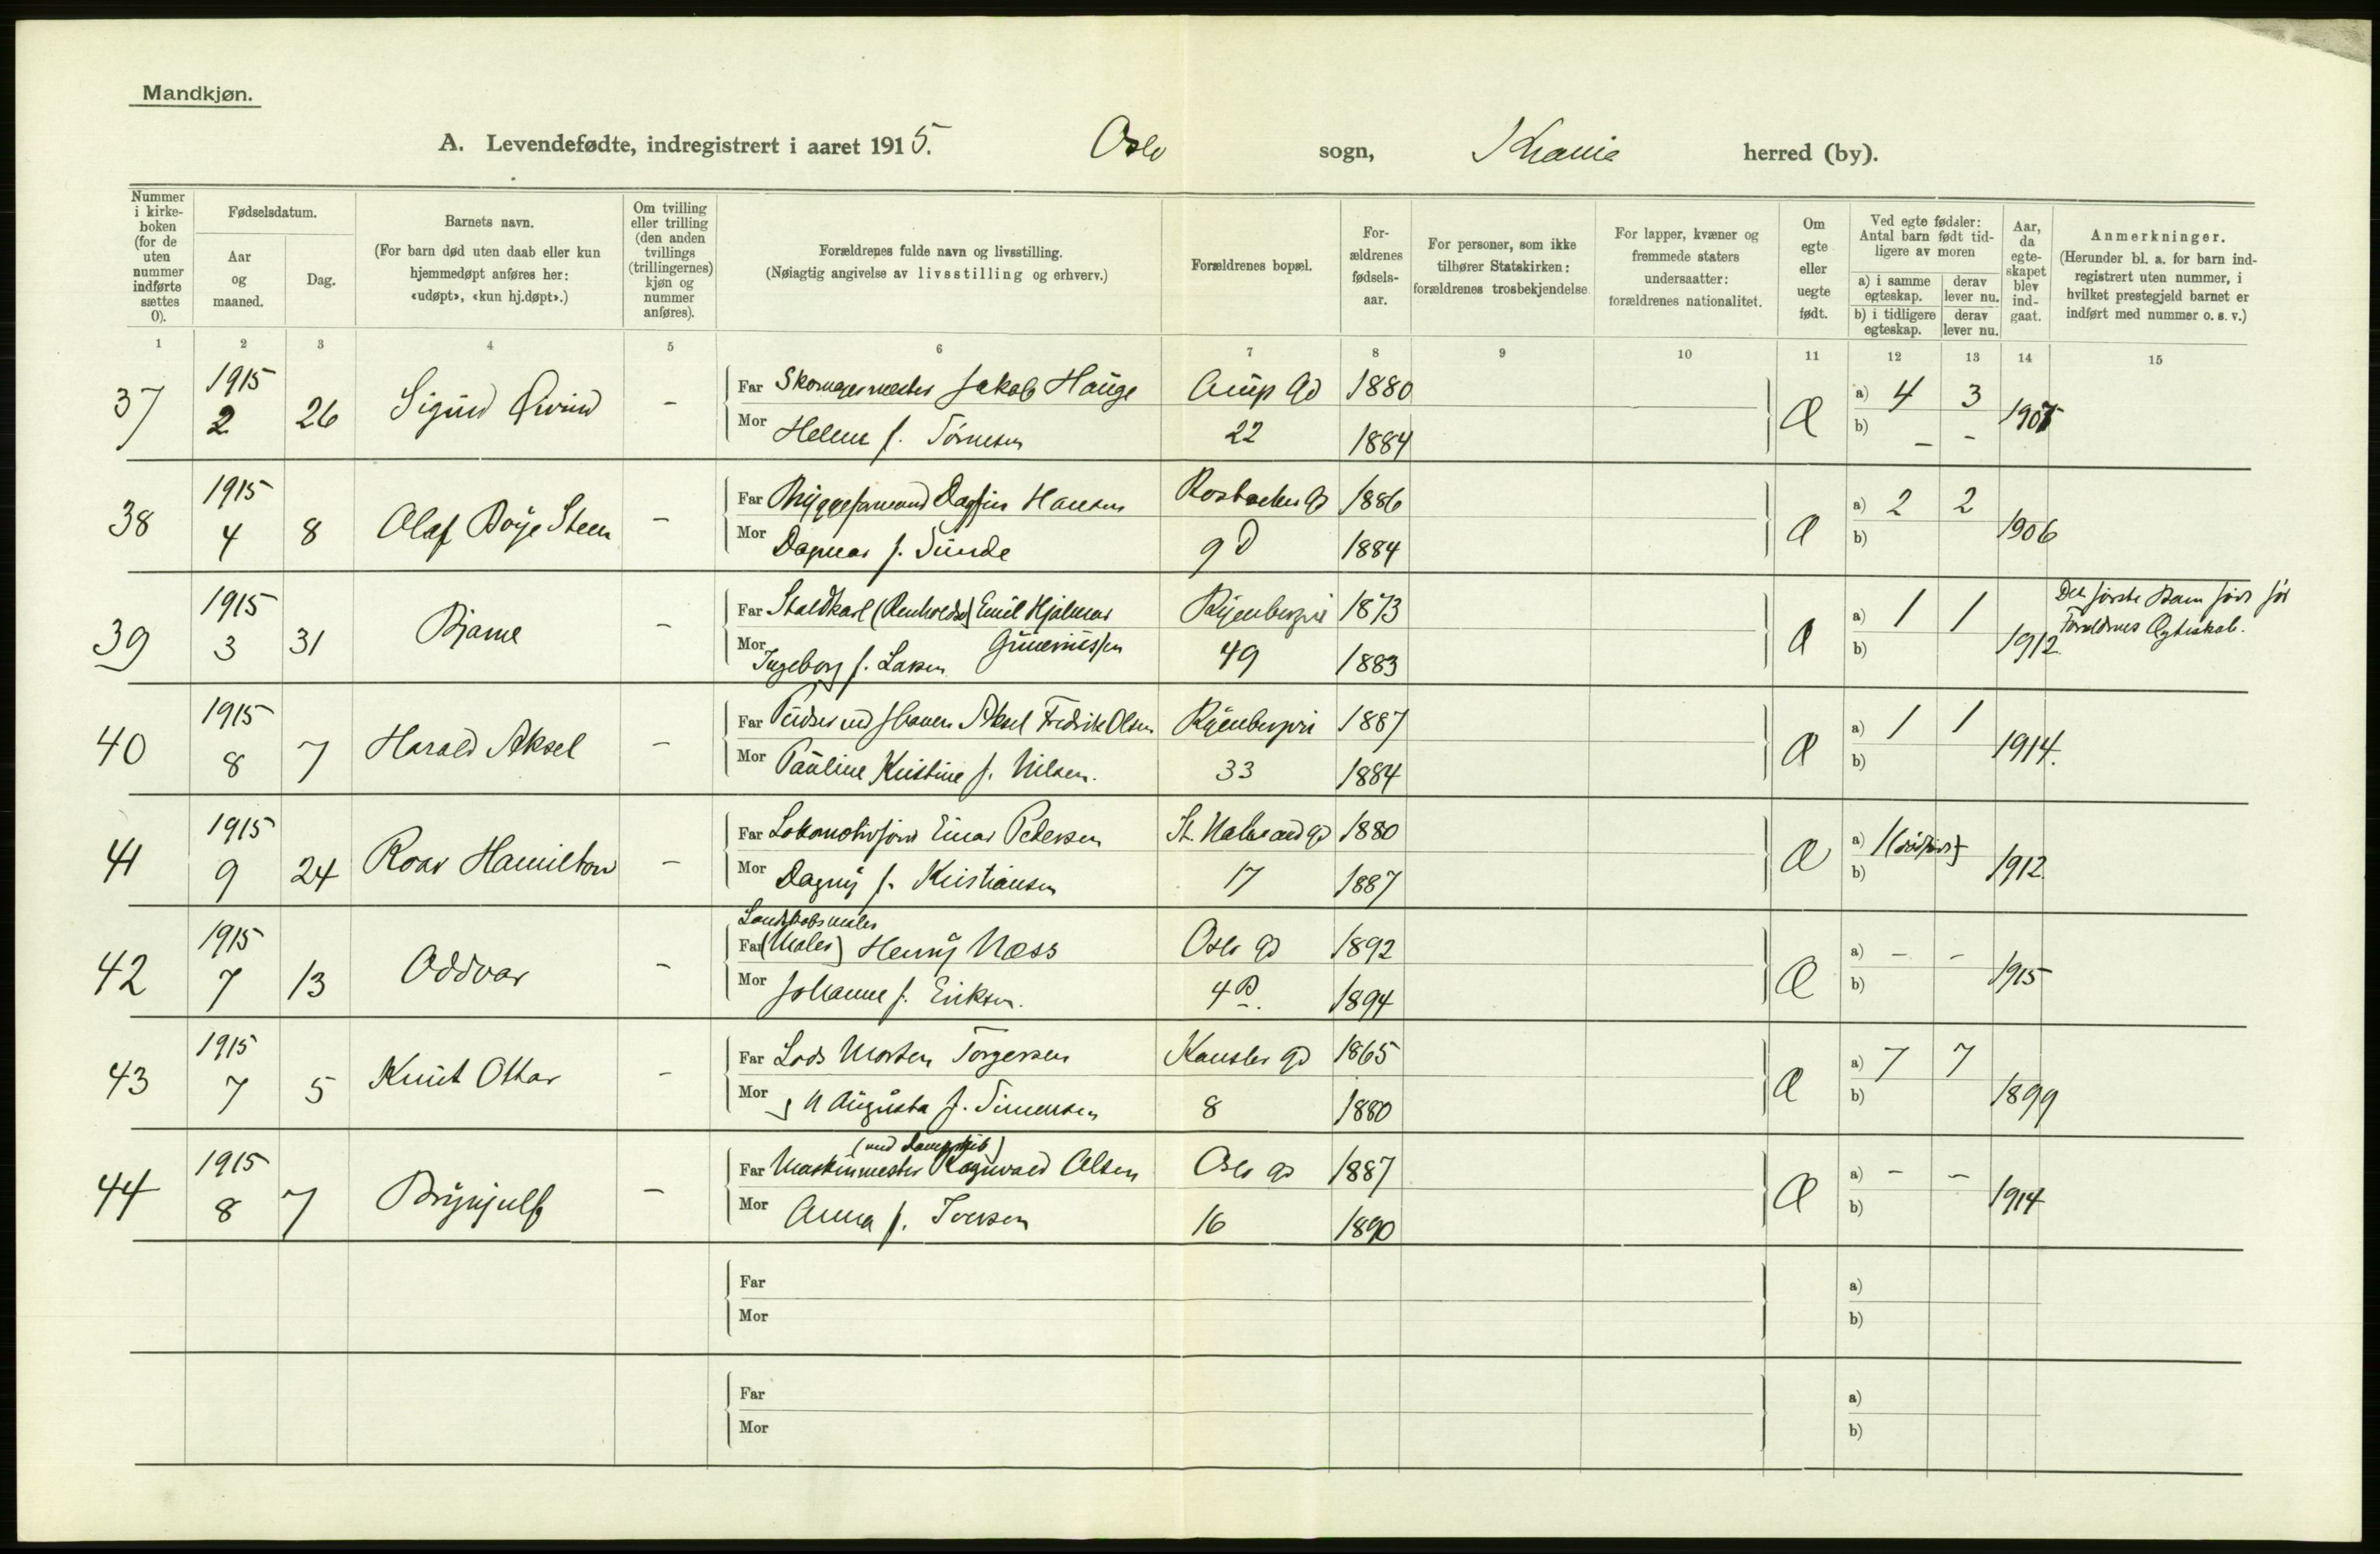 Mandkjøn.
A. Levendefødte, indregistrert i aaret 1915. Oslo sogn, Krania herred (by).
Nummer i kirke-boken (for de uten nummer indførte sættes 0).
Fødselsdatum.
Aar og maaned.
Dag.
Barnets navn.
(For barn død uten daab eller kun hjemmedøpt anføres her: «udøpt», «kun hj.døpt».)
Om tvilling eller trilling (den anden tvillings (trillingernes) kjøn og nummer anføres).
Forældrenes fulde navn og livsstilling.
(Nøiagtig angivelse av livsstilling og erhverv.)
Forældrenes bopæl.
For-ældrenes fødsels-aar.
For personer, som ikke tilhører Statskirken: forældrenes trosbekjendelse
For lapper, kvæner og fremmede staters undersaatter: forældrenes nationalitet.
Om egte eller uegte født.
Ved egte fødsler: Antal barn født tid-ligere av moren
a) i samme egteskap.
derav lever nu.
b) i tidligere egteskap.
derav lever nu.
Aar, da egte-skapet blev ind-gaat.
Anmerkninger.
(Herunder bl. a. for barn ind-registrert uten nummer, i hvilket prestegjeld barnet er indført med nummer o. s. v.)
1 2 3 4 5 6 7 8 9 10 11 12 13 14 15
37 1915 2 26 Sigurd Øivind - Far Skomagermester Jakob Hauge Gd 1880 Æ a) 4 3 1907
Mor Helene f. Tørnesen 22 1884 b) - -
38 1915 4 8 Olaf Børje Steen - Far Dagfin Hansen Gd 1886 Æ a) 2 2 1906
Mor Dagmar f. Sunde 9 D 1884 b)
39 1915 3 31 Bjarne - Far Staldkarl (Renholdsv) Emil Hjalmar Guneriussen Ryenbergvei 1873 Æ a) 1 1 1912 Det første Barn født før Forældrenes Ægteskab.
Mor Ingeborg f. Larsen 49 1883 b)
40 1915 8 7 Harald Aksel - Far Aksel Fredrik Olsen Ryenbergvei 1887 Æ a) 1 1 1914.
Mor Pauline Kristine f. Nilsen. 33 1884 b)
41 1915 9 24 Roar Hamilton - Far Lokomotivfører Einar Pedersen St. Halvard gd 1880 Æ a) 1 (dødfødt) 1912
Mor Dagny f. Kristiansen 17 1887 b)
42 1915 7 13 Oddvar - Landskabsmaler
Far (Maler) Henry Næss Oslo gd 1892 Æ a) - - 1915
Mor Johanne f. Eriksen. 4 B. 1894 b)
43 1915 7 5 Knut Ottar - Far Lods Morten Torgersen Kansler gd 1865 Æ a) 7 7 1899
Mor Augusta f. Simensen 8 1880 b)
44 1915 8 7 Brynjulf - (ved Dampskib)
Far Maskinmester Ragnvald Olsen Oslo gd 1887 Æ a) - - 1914
Mor Anna f. Iversen 16 1890 b)
Far a)
Mor b)
Far a)
Mor b)